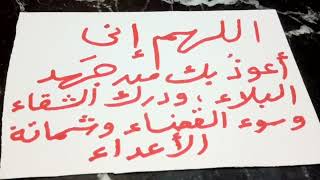 اللهم إنى
أعوذُ بك من جَهد
البلاء ، ودرك الشقاء
وسوء القضاء وشماتة
الأعداء